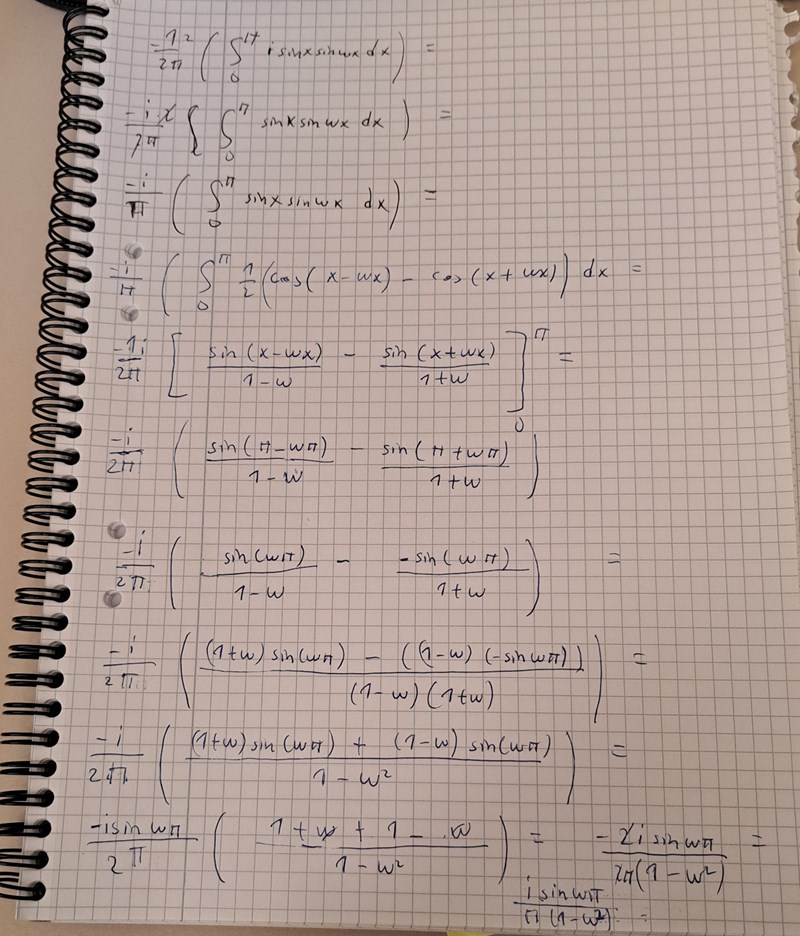 -1 2/2π ( ∫₀^π i sinx sinwx dx ) =
-i 2/2π ( ∫₀^π sinx sinwx dx ) =
-i/π ( ∫₀^π sinx sinwx dx ) =
-i/π ( ∫₀^π 1/2 (cos( x-wx) - cos (x+wx)) dx =
-1i/2π [ sin (x-wx)/1-w - sin (x+wx)/1+w ]₀^π =
-i/2π ( sin(π-wπ)/1-w - sin(π+wπ)/1+w )
-i/2π ( sin(wπ)/1-w - -sin(wπ)/1+w ) =
-i/2π ( (1+w) sin(wπ) - ((1-w) (-sinwπ))/(1-w)(1+w) ) =
-i/2π ( (1+w)sin(wπ) + (1-w) sin(wπ)/1-w² ) =
-isin wπ/2π ( 1+w + 1-w/1-w² ) = -2i sinwπ/2π(1-w²) =
i sinwπ/π(1-w²) =